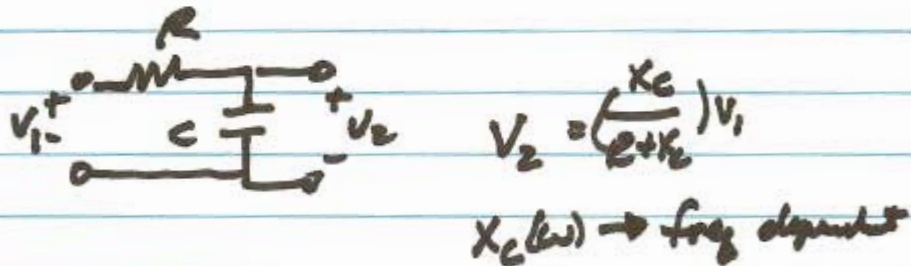 R
V₁ + -
C
+ V₂ -
V₂ = (Xc / R+Xc) V₁
Xc(ω) → freq dependent